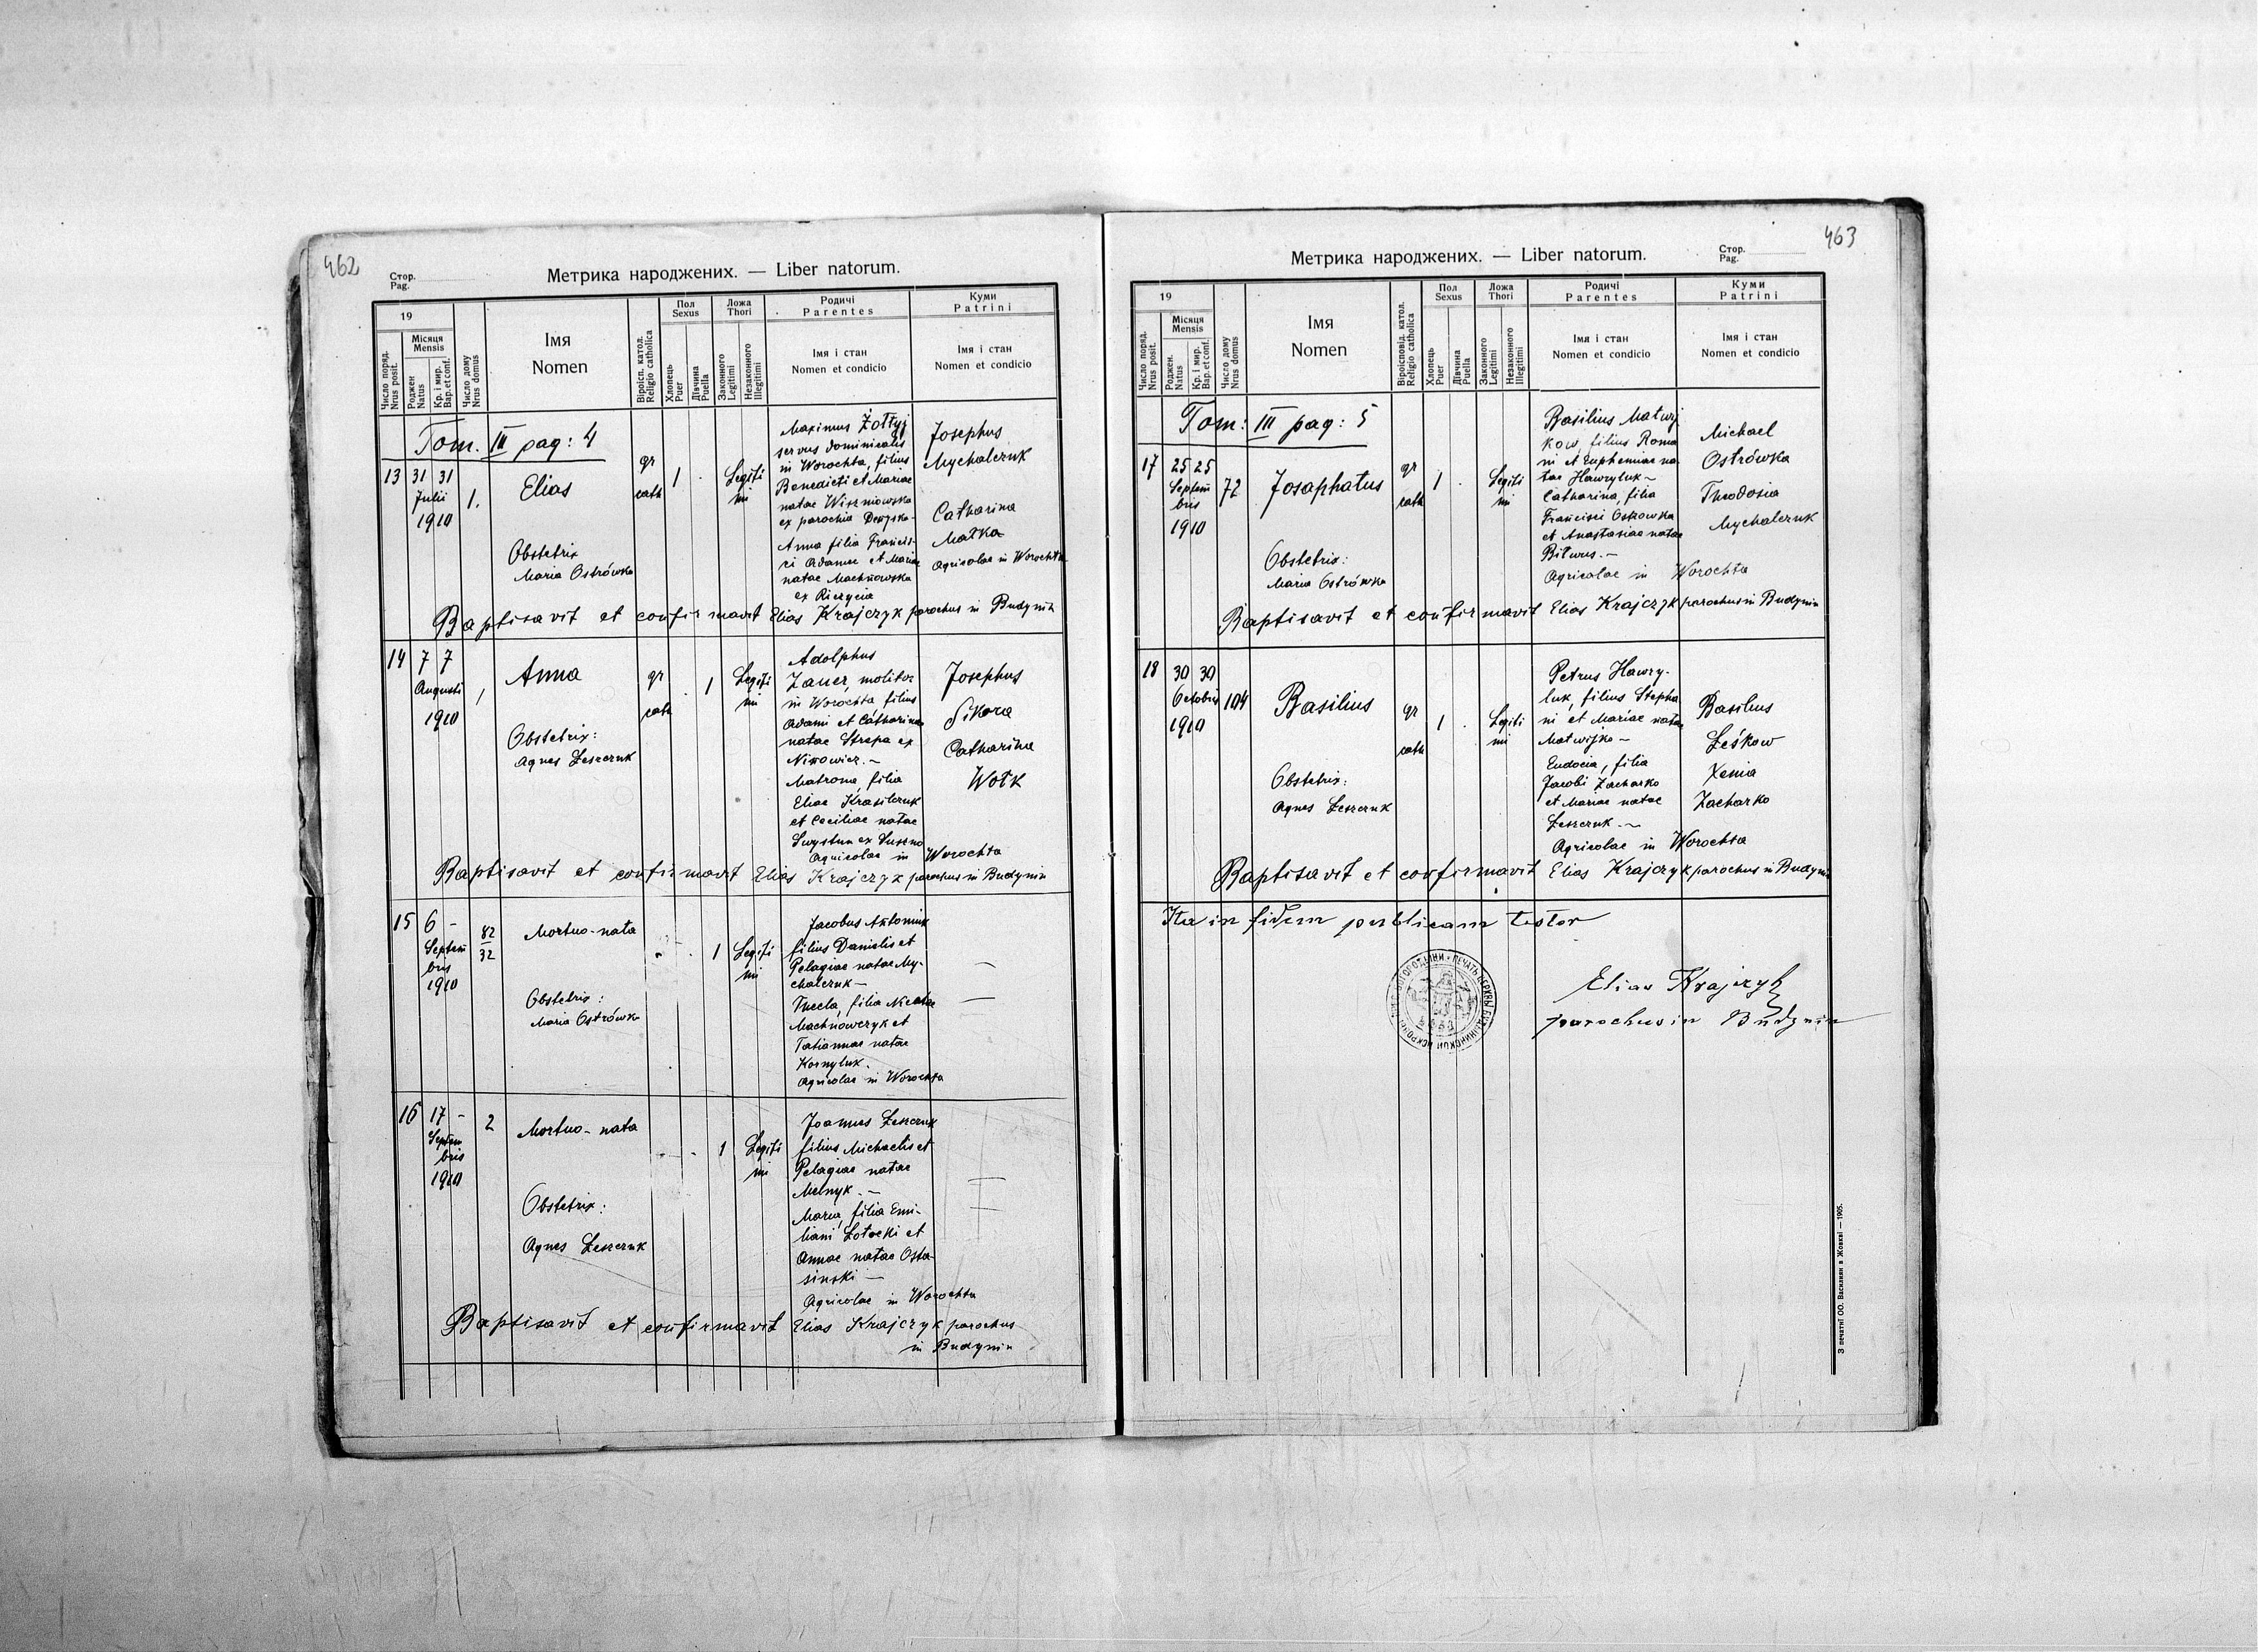 462
Стор.
Pag.
Метрика народжених. — Liber natorum.
19
Число поряд.
Nrus posit.
Місяця
Mensis
Роджен
Natus
Кр. і мир.
Bap. et conf.
Число дому
Nrus domus
Імя
Nomen
Віроісп. катол.
Religio catholica
Пол
Sexus
Хлопець
Puer
Дівчина
Puella
Ложа
Thori
Законного
Legitimi
Незаконного
Illegitimi
Родичі
Parentes
Імя і стан
Nomen et condicio
Куми
Patrini
Імя і стан
Nomen et condicio
Tom. III pag: 4
13 31 31
Julii
1910
1.
Elias
Obstetrix
Maria Ostrówka
gr
cath
1 .
Legiti
mi
Maximus Żołtyj
servus dominicalis
in Worochta, filius
Benedicti et Mariae
natae Wiszniowska
ex parochia
Anna filia Francis-
ci Adamec et Mariae
natae Machnowska
ex Riczycia
Josephus
Mychalczuk
Catharina
Małka
Agricolae in Worochta
Baptisavit et confirmavit Elias Krajczyk parochus in Budynin
14 7 7
Augusti
1910
1
Anna
Obstetrix:
Agnes Łeszczuk
gr
cath
. 1
Legiti
mi
Adolphus
Zauer, molitor
in Worochta filius
Adami et Catharinae
natae Strepa ex
Nikowicz. —
Matrona, filia
Eliae Krasilczuk
et Ceciliae natae
Swystun ex Suszno
Agricolae in Worochta
Josephus
Sikora
Catharina
Wołk
Baptisavit et confirmavit Elias Krajczyk parochus in Budynin
15 6 -
Septem
bris
1910
82
32
Mortuo-nata
Obstetrix:
Maria Ostrówka
. 1
Legiti
mi
Jacobus Antoniuk
filius Danielis et
Pelagiae natae My-
chalczuk —
Thecla, filia Nicolai
Machnowczyk et
Tatiannae natae
Kornyluk.
Agricolae in Worochta
—
—
16 17 -
Septem
bris
1910
2
Mortuo-nata
Obstetrix:
Agnes Łeszczuk
. 1
Legiti
mi
Joannes Łeszczuk
filius Michaelis et
Pelagiae natae
Melnyk. —
Maria, filia Emi-
liani Łotocki et
Annae natae Osta-
sinski —
Agricolae in Worochta
—
—
Baptisavit et confirmavit Elias Krajczyk parochus
in Budynin
463
Метрика народжених. — Liber natorum.
Стор.
Pag.
19
Число поряд.
Nrus posit.
Місяця
Mensis
Роджен.
Natus
Кр. і мир.
Bap. et conf.
Число дому
Nrus domus
Імя
Nomen
Віросповід. катол.
Religio catholica
Пол
Sexus
Хлопець
Puer
Дівчина
Puella
Ложа
Thori
Законного
Legitimi
Незаконного
Illegitimi
Родичі
Parentes
Імя і стан
Nomen et condicio
Куми
Patrini
Імя і стан
Nomen et condicio
Tom: III pag: 5
17 25 25
Septem
bris
1910
72
Josaphatus
Obstetrix:
Maria Ostrówka
gr
cath
1 .
Legiti
mi
Basilius Matwij
kow, filius Roma
ni et Euphemiae na-
tae Hawryluk —
Catharina, filia
Francisci Ostrowka
et Anastasiae natae
Biłwus. —
Agricolae in Worochta
Michael
Ostrówka
Theodosia
Mychalczuk
Baptisavit et confirmavit Elias Krajczyk parochus in Budynin
18 30 30
Octobris
1910
104
Basilius
Obstetrix:
Agnes Łeszczuk
gr
cath
1 .
Legiti
mi
Petrus Hawry-
luk, filius Stepha
ni et Mariae natae
Matwijko —
Eudocia, filia
Jacobi Zacharko
et Mariae natae
Łeszczuk. —
Agricolae in Worochta
Basilius
Łeśkow
Xenia
Zacharko
Baptisavit et confirmavit Elias Krajczyk parochus in Budynin
Ita in fidem publicam testor
Elias Krajczyk
parochus in Budynin
З печатні ОО. Василиян в Жовкві — 1905.